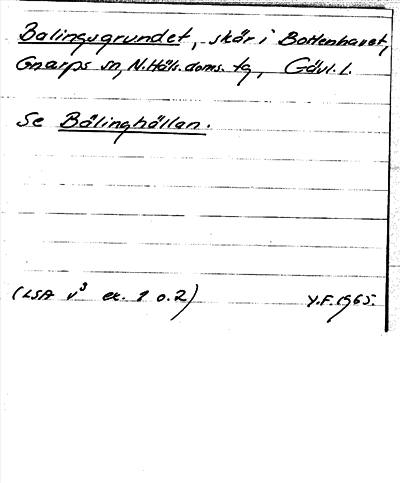 Balingsgrundet, skär i Bottenhavet,
Gnarps sn, N. Häls. doms. tg, Gävl. l.
Se Bälinghällan.
(LSA v³ ex. 1 o. 2)
Y.F. 1965.